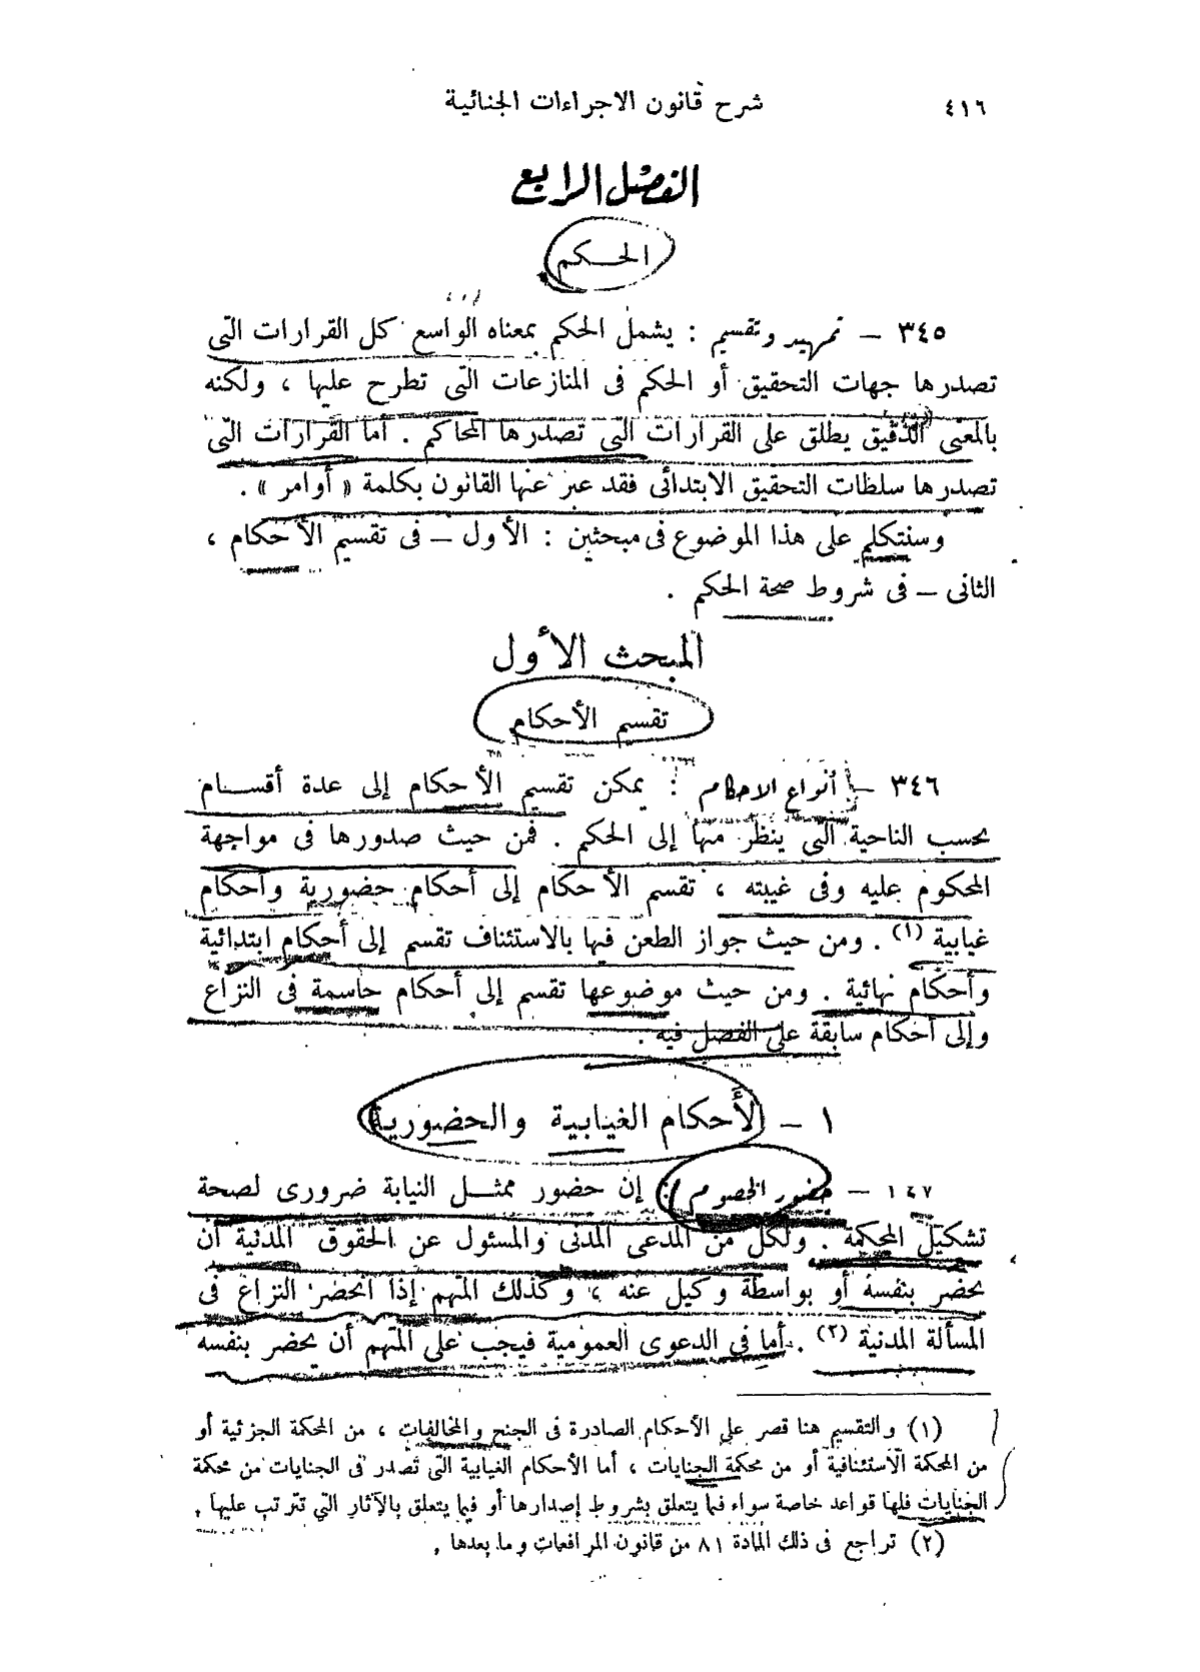 ٤١٦
شرح قانون الاجراءات الجنائية
الفصل الرابع
الحكم
٣٤٥ — تمهيد وتقسيم : يشمل الحكم بمعناه الواسع كل القرارات التى
تصدرها جهات التحقيق أو الحكم فى المنازعات التى تطرح عليها ، ولكنه
بالمعنى الدقيق يطلق على القرارات التى تصدرها المحاكم . أما القرارات التى
تصدرها سلطات التحقيق الابتدائى فقد عبر عنها القانون بكلمة « أوامر » .
وسنتكلم على هذا الموضوع فى مبحثين : الأول — فى تقسيم الأحكام ،
الثانى — فى شروط صحة الحكم .
المبحث الأول
تقسيم الأحكام
٣٤٦ — أنواع الاحكام : يمكن تقسيم الأحكام إلى عدة أقسام
بحسب الناحية التى ينظر منها إلى الحكم . فمن حيث صدورها فى مواجهة
المحكوم عليه وفى غيبته ، تقسم الأحكام إلى أحكام حضورية وأحكام
غيابية (١) . ومن حيث جواز الطعن فيها بالاستئناف تقسم إلى أحكام ابتدائية
وأحكام نهائية . ومن حيث موضوعها تقسم إلى أحكام حاسمة فى النزاع
وإلى أحكام سابقة على الفصل فيه .
١ — الأحكام الغيابية والحضورية
١٤٧ — حضور الخصوم : إن حضور ممثل النيابة ضرورى لصحة
تشكيل المحكمة . ولكل من المدعى المدنى والمسئول عن الحقوق المدنية أن
يحضر بنفسه أو بواسطة وكيل عنه ، وكذلك المتهم إذا انحصر النزاع فى
المسألة المدنية (٢) . أما فى الدعوى العمومية فيجب على المتهم أن يحضر بنفسه
(١) والتقسيم هنا قصر على الأحكام الصادرة فى الجنح والمخالفات ، من المحكمة الجزئية أو
من المحكمة الاستئنافية أو من محكمة الجنايات ، أما الأحكام الغيابية التى تصدر فى الجنايات من محكمة
الجنايات فلها قواعد خاصة سواء فيما يتعلق بشروط إصدارها أو فيما يتعلق بالآثار التي تترتب عليها .
(٢) تراجع فى ذلك المادة ٨١ من قانون المرافعات وما بعدها .